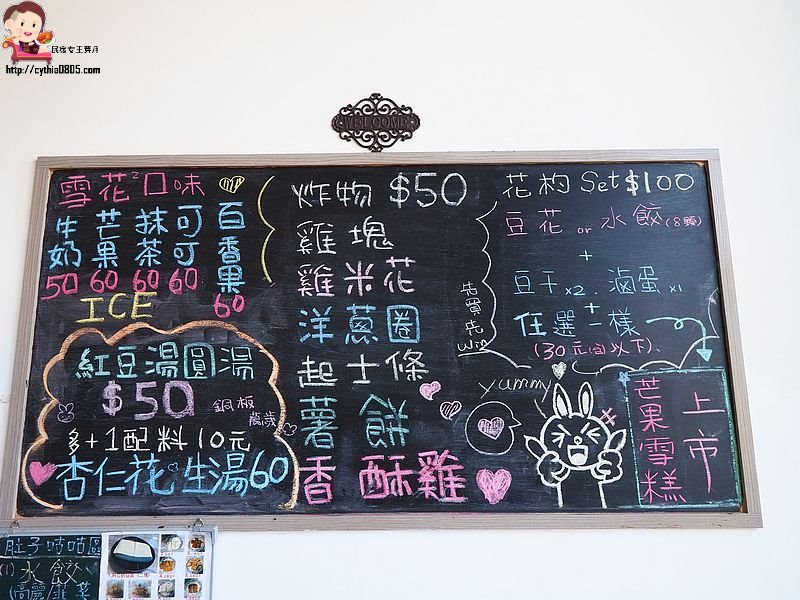 民宿女王芽月
http://cythia0805.com
WELCOME
雪花口味
牛奶 50
芒果 60
抹茶 60
可可 60
百香果 60
ICE
紅豆湯圓湯
$50
銅板萬歲
多+1配料10元
杏仁花生湯60
炸物 $50
雞塊
雞米花
洋蔥圈
起士條
薯餅
香酥雞
先買先
win
花杓 Set $100
豆花 or 水餃(8顆)
+
豆干x2、滷蛋x1
+
任選一樣
(30元以下)、
yummy
芒果雪糕
上市
肚子咕咕
(1) 水餃